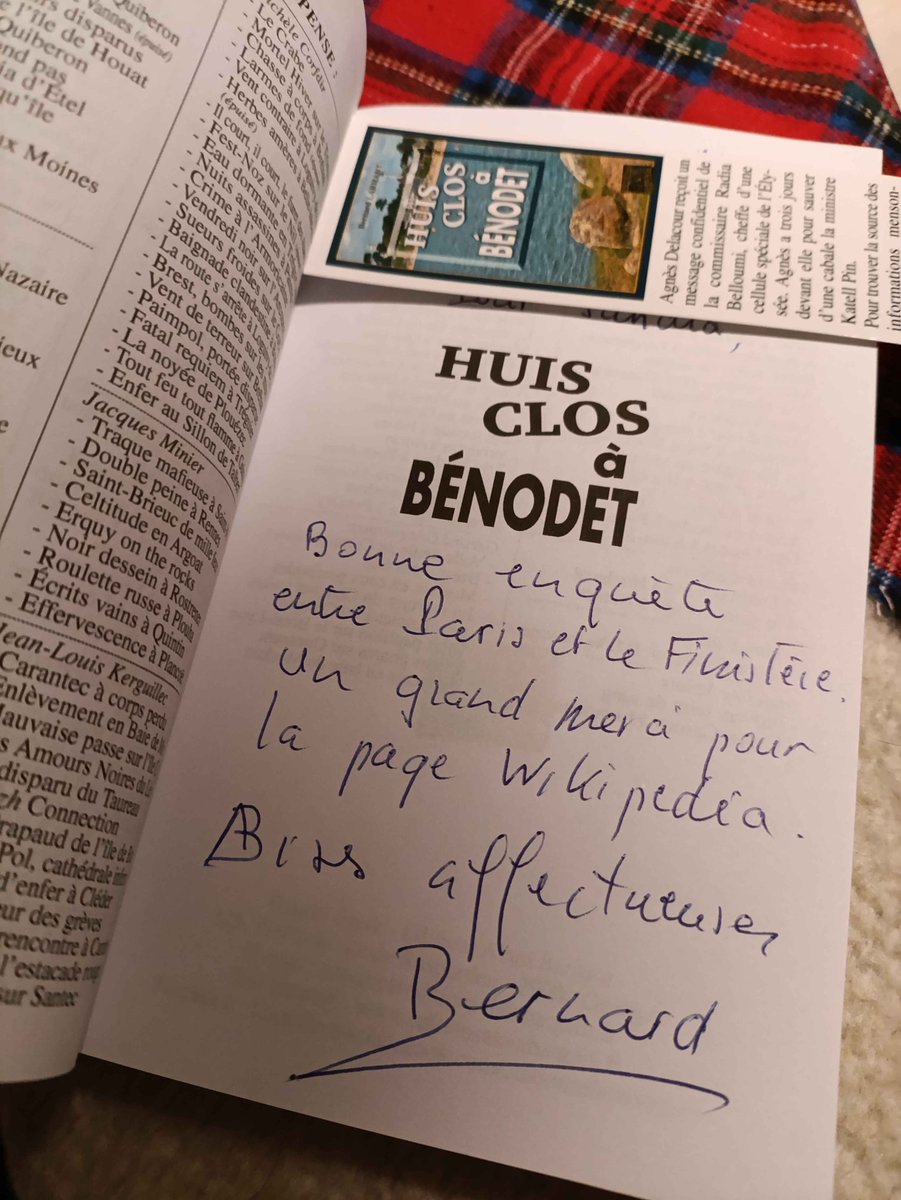 Quiberon
Vannes (épuisé)
rs disparus
l'île de Houat
Quiberon
and pas
ia d'Étel
qu'île
ux Moines
Nazaire
ieux
PENSE :
Michèle Corfdir
- Le Crabe
- Mortel Hiver sur
- Chasse à corps à
- Larmes de fond
- Vent contraire à
- Herbes amères
(épuisé)
- Il court, il court, le
- Fest-Noz sur le
- Eau dormante en
- Nuits assassines
- Crime à l'Armor
- Vendredi noir sur
- Sueurs froides sur
- Baignade clandestine
- La route s'arrête à
- Brest, bombes sur
- Vent de terreur sur
- Paimpol, portée
- Fatal requiem à
- La noyée de Plouézec
- Tout feu tout flamme à
- Enfer au Sillon de
Jacques Minier
- Traque mafieuse à
- Double peine à Rennes
- Saint-Brieuc de mille
- Celtitude en Argoat
- Erquy on the rocks
- Noir dessein à
- Roulette russe à
- Écrits vains à Quintin
- Effervescence à
Jean-Louis Kerguillec
Carantec à corps perdu
Enlèvement en Baie de
Mauvaise passe sur l'île
s Amours Noires du
disparu du Taureau
gh Connection
rapaud de l'île de
Pol, cathédrale
d'enfer à Cléder
eur des grèves
rencontre à
l'estacade
sur Santec
HUIS
CLOS
à
BÉNODET
Agnès Delacour reçoit un
message confidentiel de
la commissaire Radia
Belloumi, cheffe d'une
cellule spéciale de l'Ély-
sée. Agnès a trois jours
devant elle pour sauver
d'une cabale la ministre
Katell Pin.
Pour trouver la source des
informations menson-
HUIS
CLOS
à
BÉNODET
Bonne enquête
entre Paris et le Finistère.
un grand merci pour
la page Wikipedia.
Bises affectueuses
Bernard